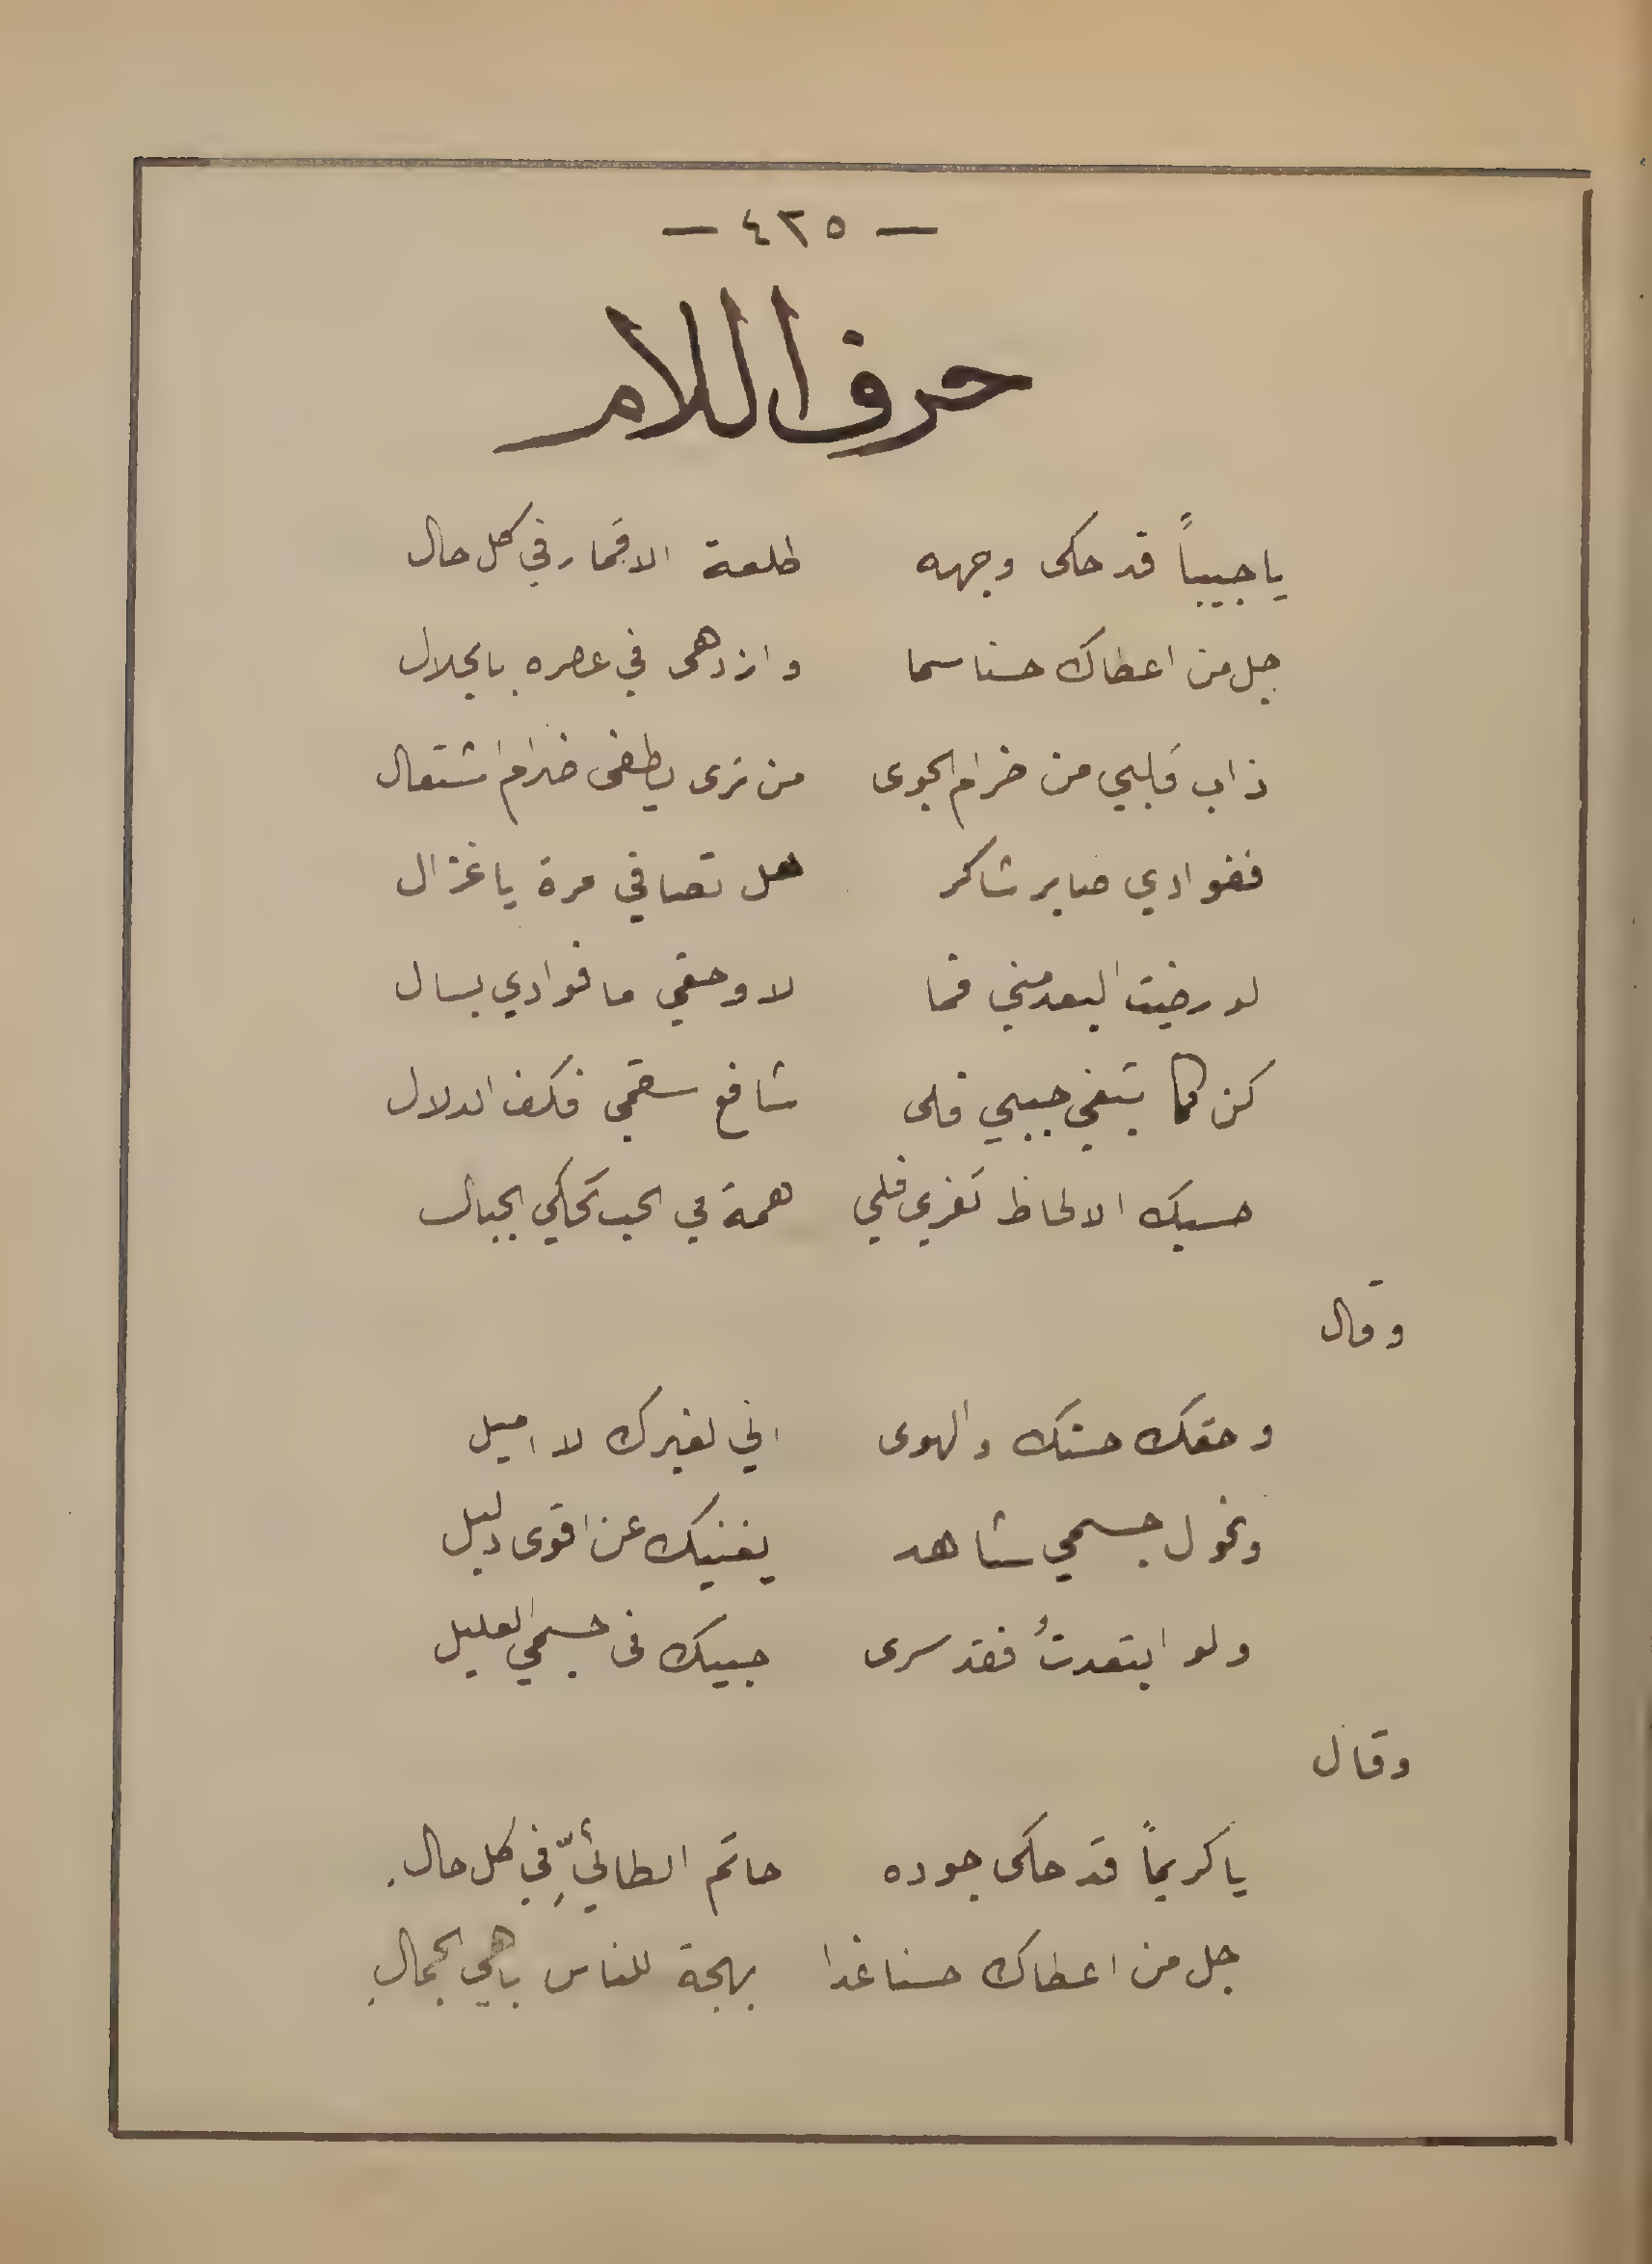 — ٤٢٥ —
حرف اللام
يا حبيباً قد حكى وجهه طلعة الاقمار في كل حال
جل من اعطاك حسنا سما وازدهى في عصره بالجلال
ذاب قلبي من ضرام الجوى من ترى يطفى ضرام اشتعال
ففوادي صابر شاكر هل تصافي مرة يا غزال
لو رضيت البعد مني فما لا وحقي ما فوادي بسال
كن كما تبتغي حبيبي فلى شافع سقمي فكف الدلال
حسبك الالحاظ تغري فلي همة في الحب تحكي الجبال
وقال
وحقك حسنك والهوى اني لغيرك لا اميل
ونحول جسمي شاهد يغنيك عن اقوى دليل
ولو ابتعدتُ فقد سرى حبيك فى جسمي العليل
وقال
يا كريماً قد حكى جوده حاتم الطائيِّ في كل حال.
جل من اعطاك حسنا غدا بهجة للناس باهي الجمالِ